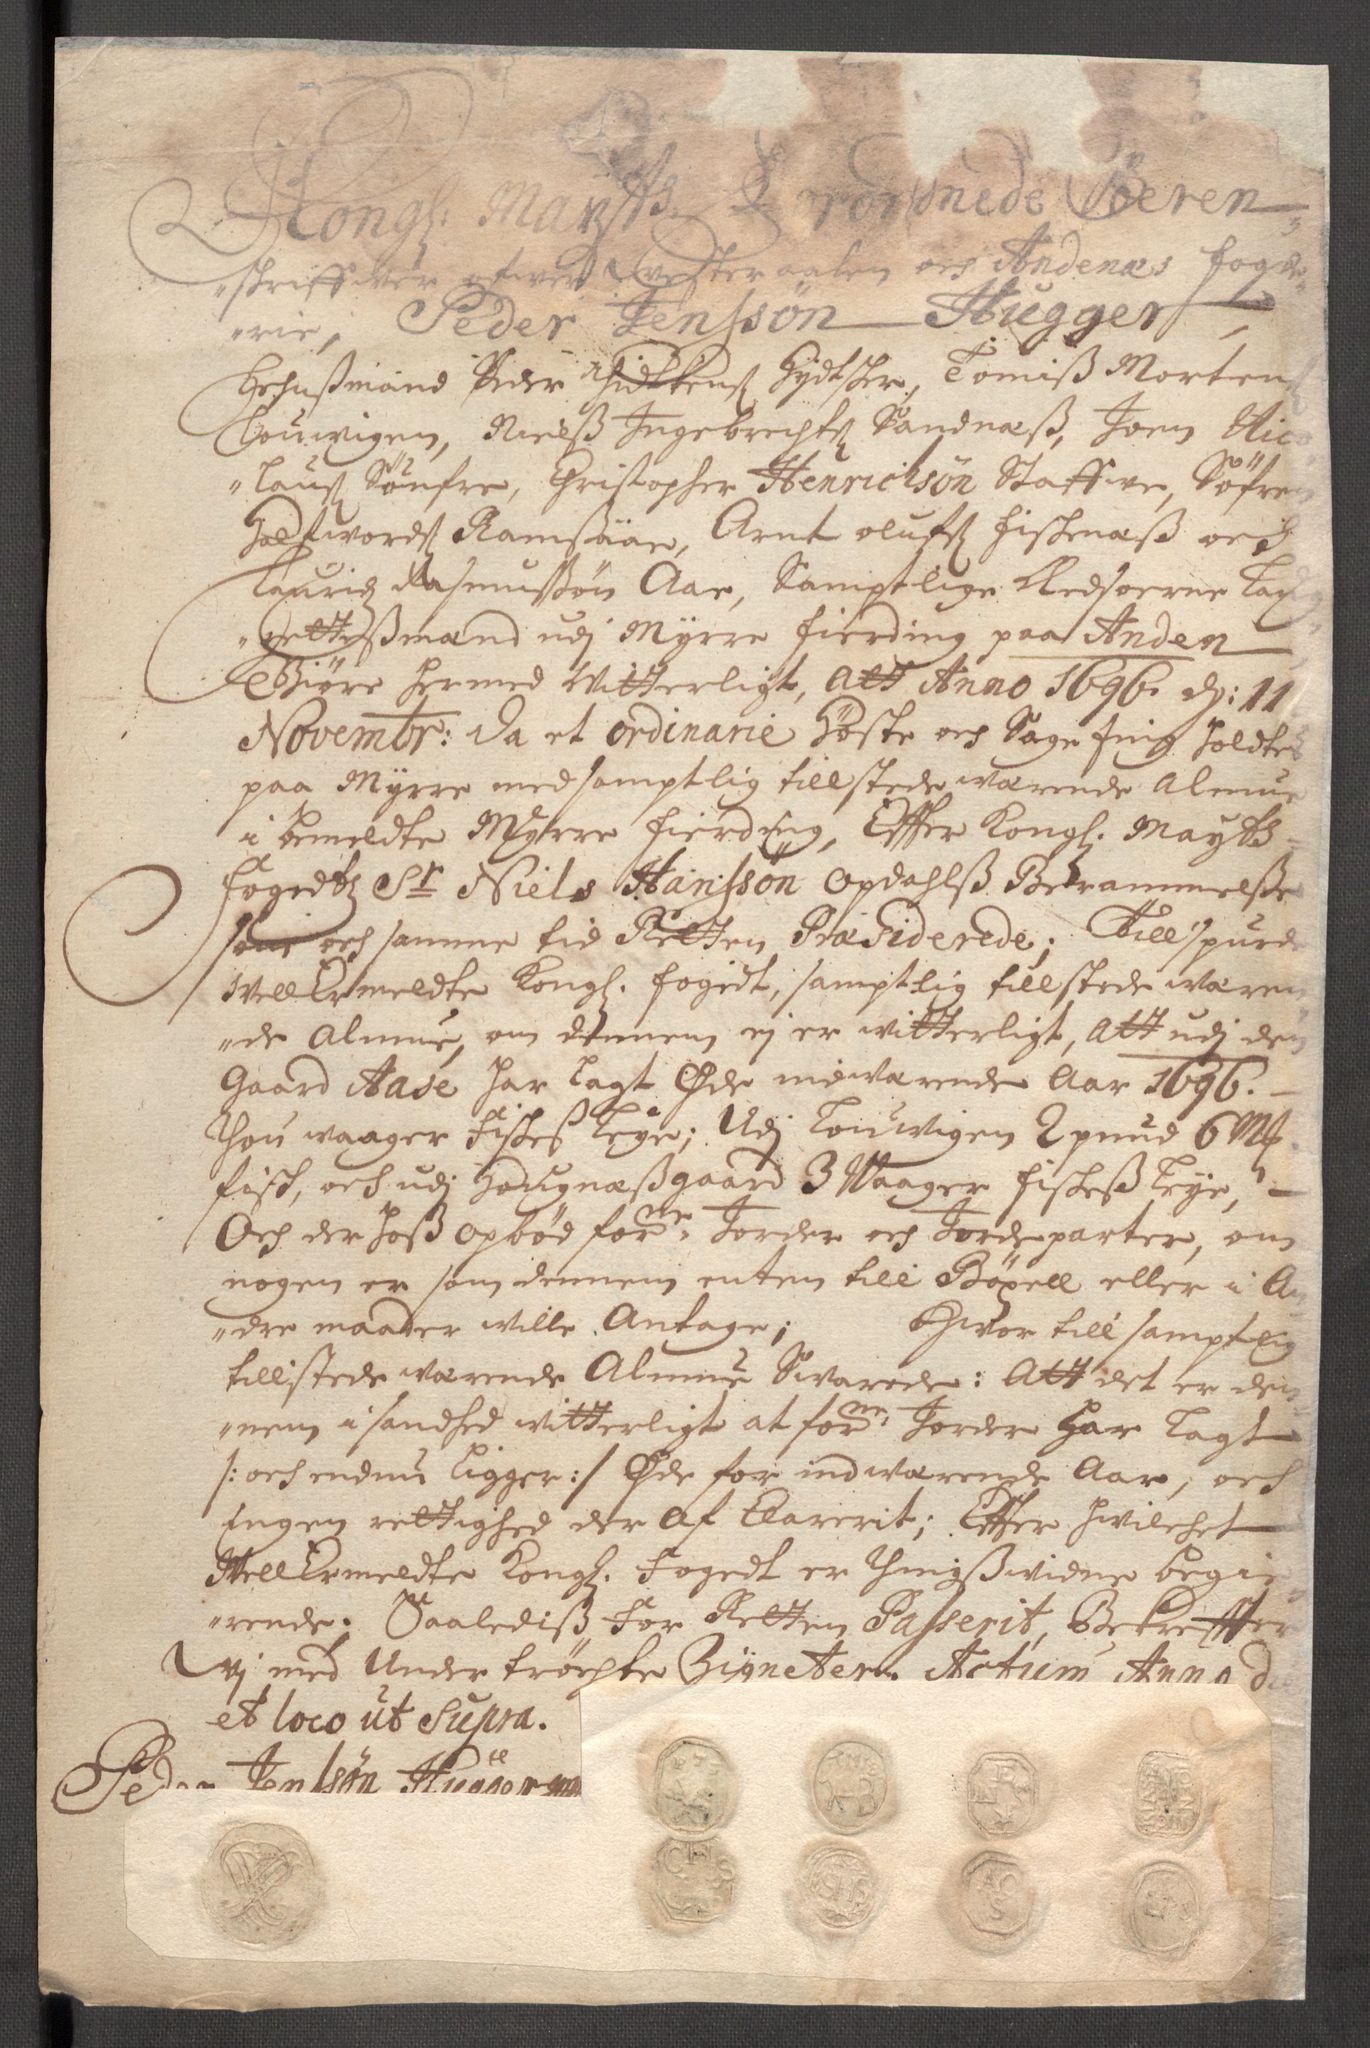 Kongl: Maysts. Forordnede Soeren
"skriffwer ofwer Westeraalen och Andenes fogde"
"rie, Peder Jenssön Hugger,
Lehnßmand Peder Hydtsker, Tomiß Morten
Louwigen, Nielß Ingebrechts Sandnæß, Joen Nico
"lauß Sønfre, Christopher Henrichsön Staffwe, Söfren
Holfwords Ramsåae, Arnt olufs Fiskenæß och
Laurids Rasmussøn Aae, Samptlige Edsoerne Laug
"rettißmænd udj Myrre fierding paa Anden
Giöre hermed Witterligt, Att Anno 1696. dj: 11
Novembr: da et ordinarie Høste och Sage ting holdtes
paa Myrre med samptlig tillstede wærende Almue
i bemeldte Myrre fierding, Effter Kongl. Mayts
fogedts Sr Niels Hanssön Opdahlß Berammelße
som och samme tid Retten Præsiderede; Tillspurde
Well Ermeldte Kongl. fogedt, samptlig tillstede wæren
"de Almue, om dennem ej er witterligt, Att udj den
Gaard Aase har lagt Øde indwærende Aar 1696.
Thou waager fiskeß leye; Udj Louwigen 2 pund 6 Mk
fisk, och udj Hougnæßgaard 3 Waager fiskeß Leye,
Och der hoß opbød forne Jorder och Jordeparter, om
nogen er som dennem enten till Böxell eller i An
"dre maader wille Antage; Hwor till samptlig
tillstede wærende Almue Swarede: Att det er den
"nem i sandhed witterligt at forne Jorder har lagt
/: och endnu ligger :/ Øde for indwærende Aar, och
Ingen rettighed der af Clarerit; Effter hwilchet
Well Ermeldte Kongl. Fogedt er Thingßwidne begie
"rende. Saalediß for Retten Passerit, Bekreffter
Wj med Under tröchte Zigneter. Actum Anno die
et loco ut supra.
Peder Jenssön Hugger